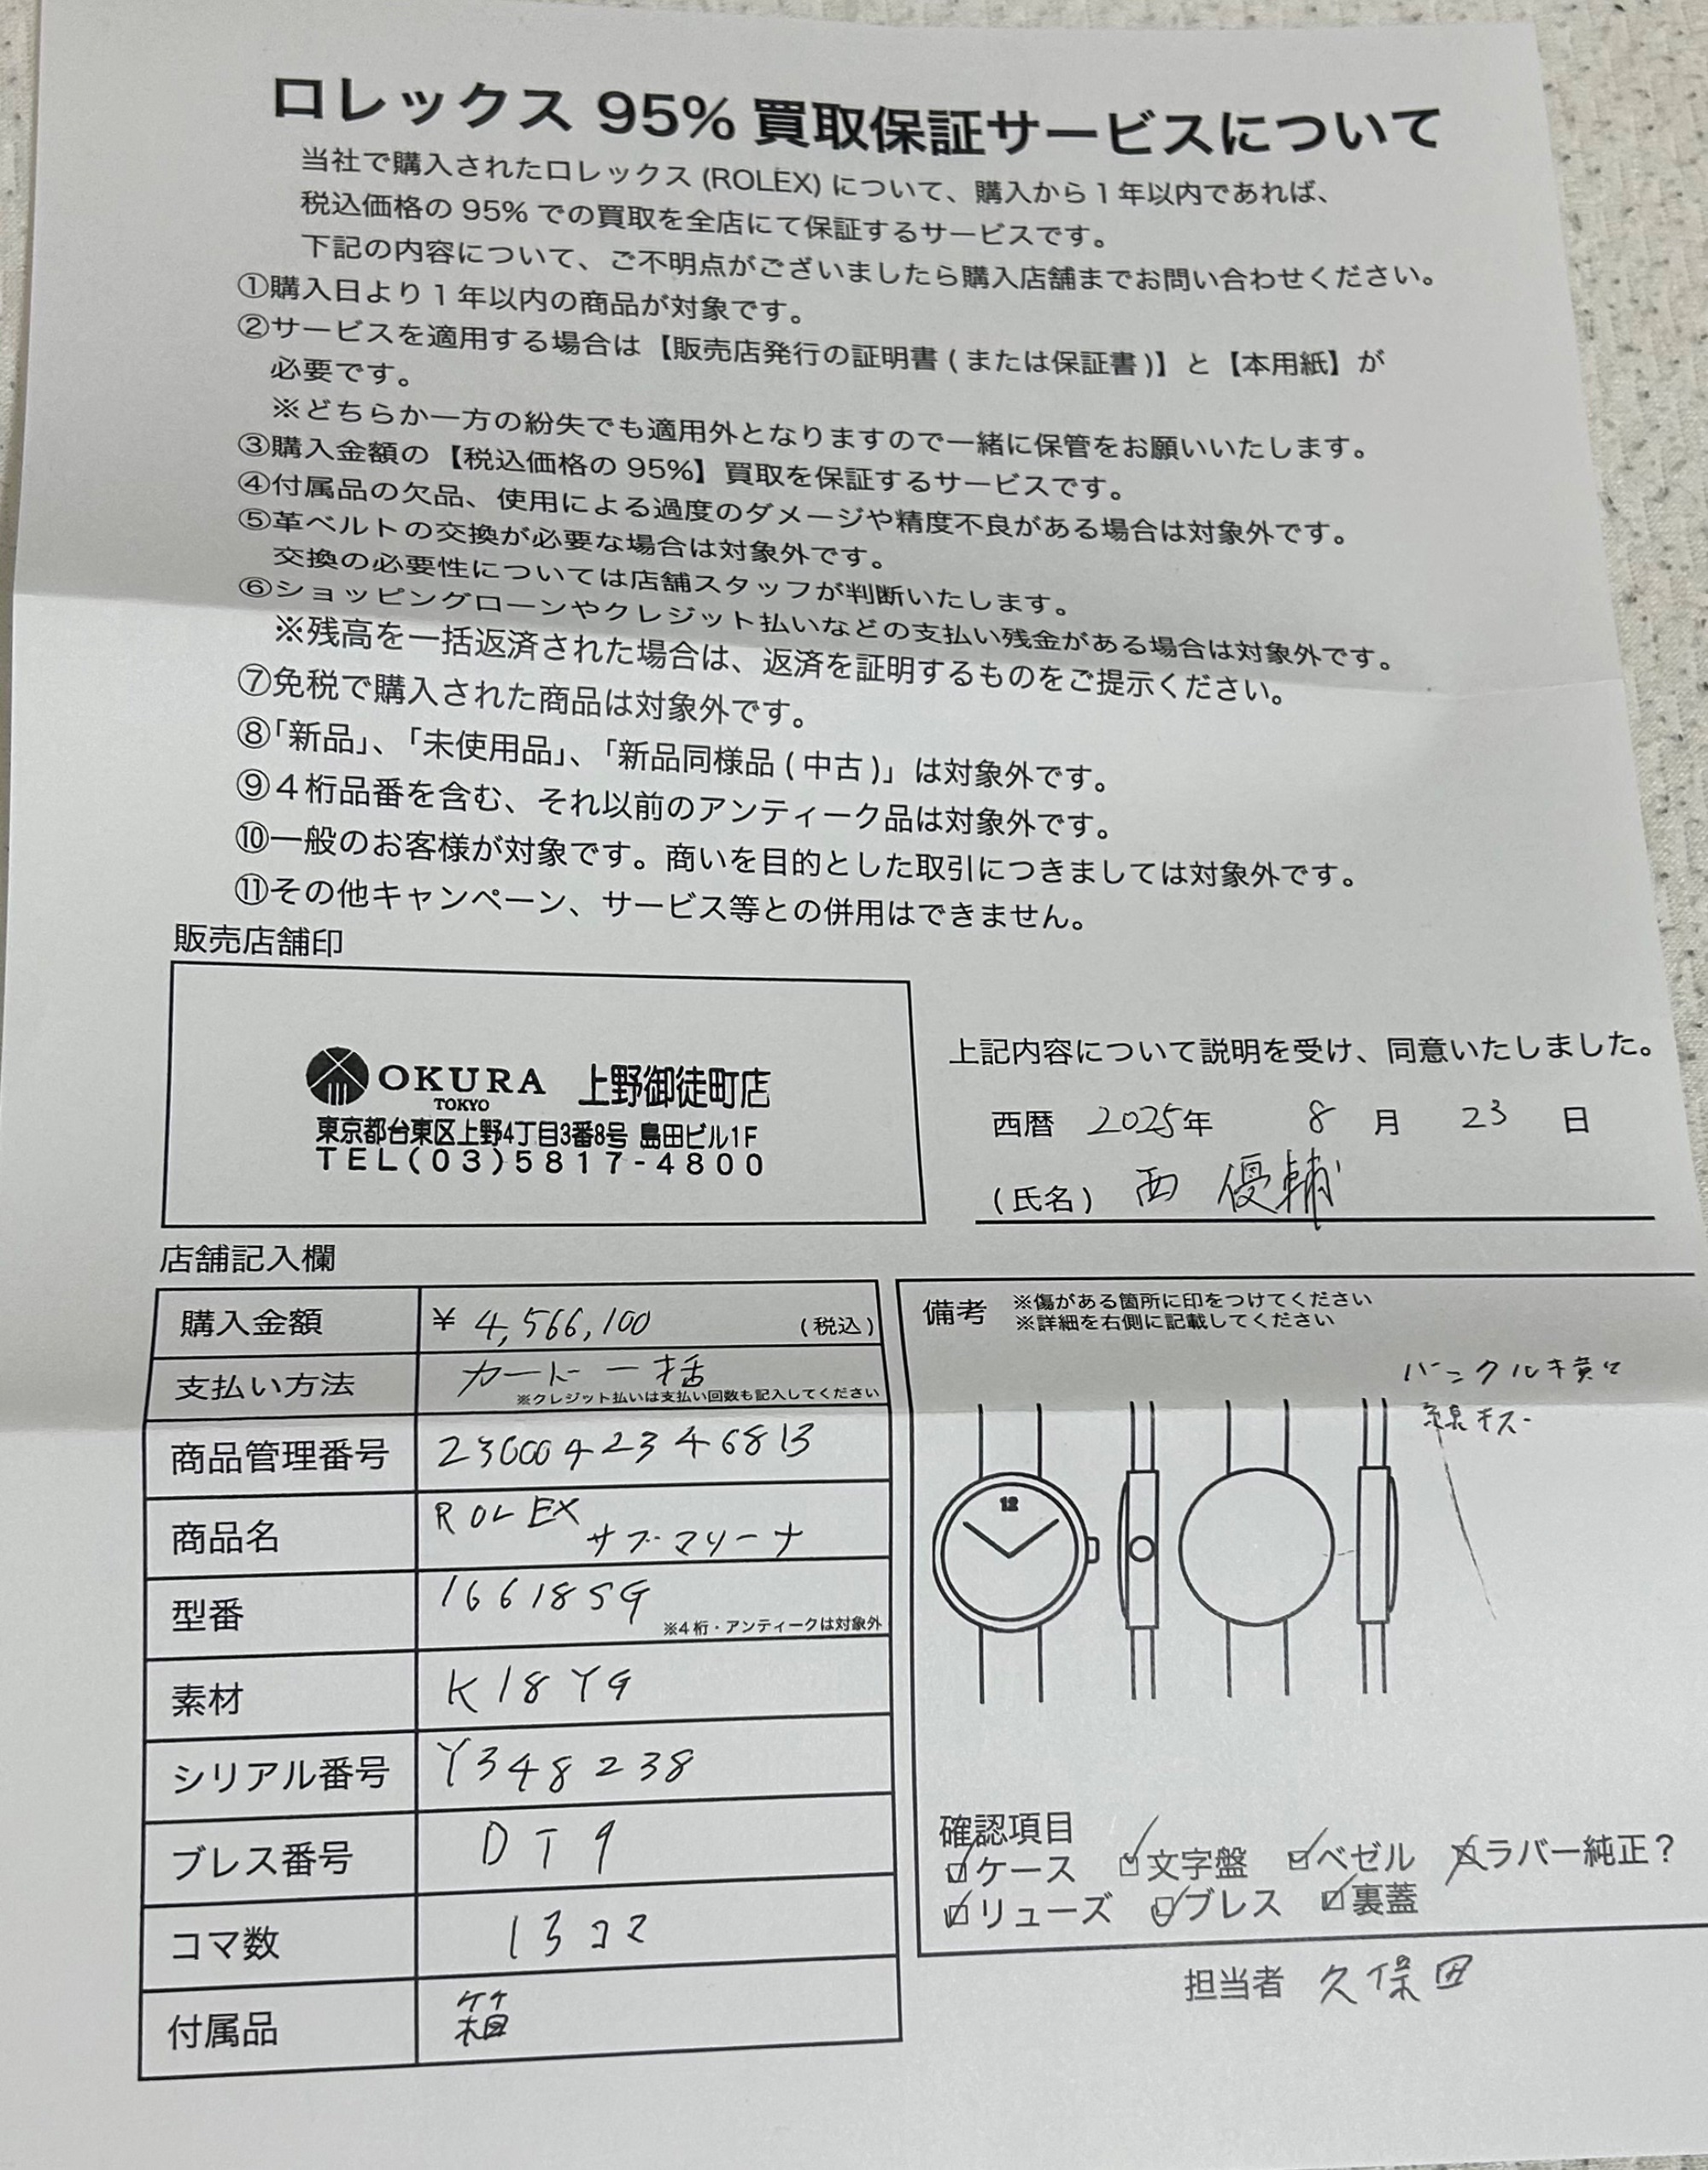 ロレックス 95% 買取保証サービスについて
当社で購入されたロレックス (ROLEX) について、購入から１年以内であれば、
税込価格の 95% での買取を全店にて保証するサービスです。
下記の内容について、ご不明点がございましたら購入店舗までお問い合わせください。
①購入日より１年以内の商品が対象です。
②サービスを適用する場合は【販売店発行の証明書 ( または保証書 )】と【本用紙】が
必要です。
※どちらか一方の紛失でも適用外となりますので一緒に保管をお願いいたします。
③購入金額の【税込価格の 95%】買取を保証するサービスです。
④付属品の欠品、使用による過度のダメージや精度不良がある場合は対象外です。
⑤革ベルトの交換が必要な場合は対象外です。
交換の必要性については店舗スタッフが判断いたします。
⑥ショッピングローンやクレジット払いなどの支払い残金がある場合は対象外です。
※残高を一括返済された場合は、返済を証明するものをご提示ください。
⑦免税で購入された商品は対象外です。
⑧「新品」、「未使用品」、「新品同様品 ( 中古 )」は対象外です。
⑨４桁品番を含む、それ以前のアンティーク品は対象外です。
⑩一般のお客様が対象です。商いを目的とした取引につきましては対象外です。
⑪その他キャンペーン、サービス等との併用はできません。
販売店舗印
OKURA 上野御徒町店
TOKYO
東京都台東区上野4丁目3番8号 島田ビル1F
TEL(03)5817-4800
上記内容について説明を受け、同意いたしました。
西暦 2025年 8 月 23 日
（氏名） 西 優輔
店舗記入欄
購入金額 ¥ 4,566,100 （税込）
支払い方法 カード一括
※クレジット払いは支払い回数も記入してください
商品管理番号 2300042346813
商品名 ROLEX
サブマリーナ
型番 16618SG
※４桁・アンティークは対象外
素材 K18YG
シリアル番号 Y348238
ブレス番号 DT9
コマ数 13コマ
付属品 箱
備考 ※傷がある箇所に印をつけてください
※詳細を右側に記載してください
線キズ
12
確認項目
ケース 文字盤 ベゼル ラバー純正？
リューズ ブレス 裏蓋
担当者 久保田